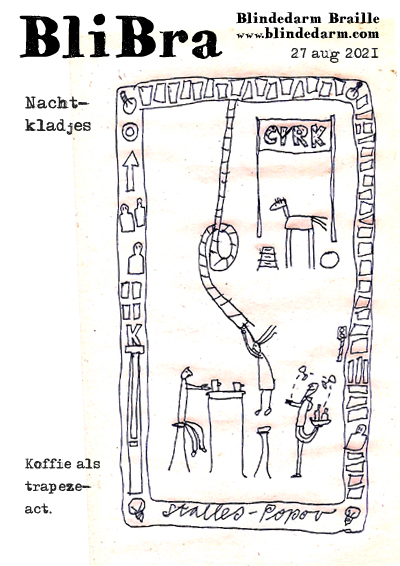 BliBra
Blindedarm Braille
www.blindedarm.com
27 aug 2021
Nacht-
kladjes
CYRK
K
Koffie als
trapeze-
act.
Stalles-Popov